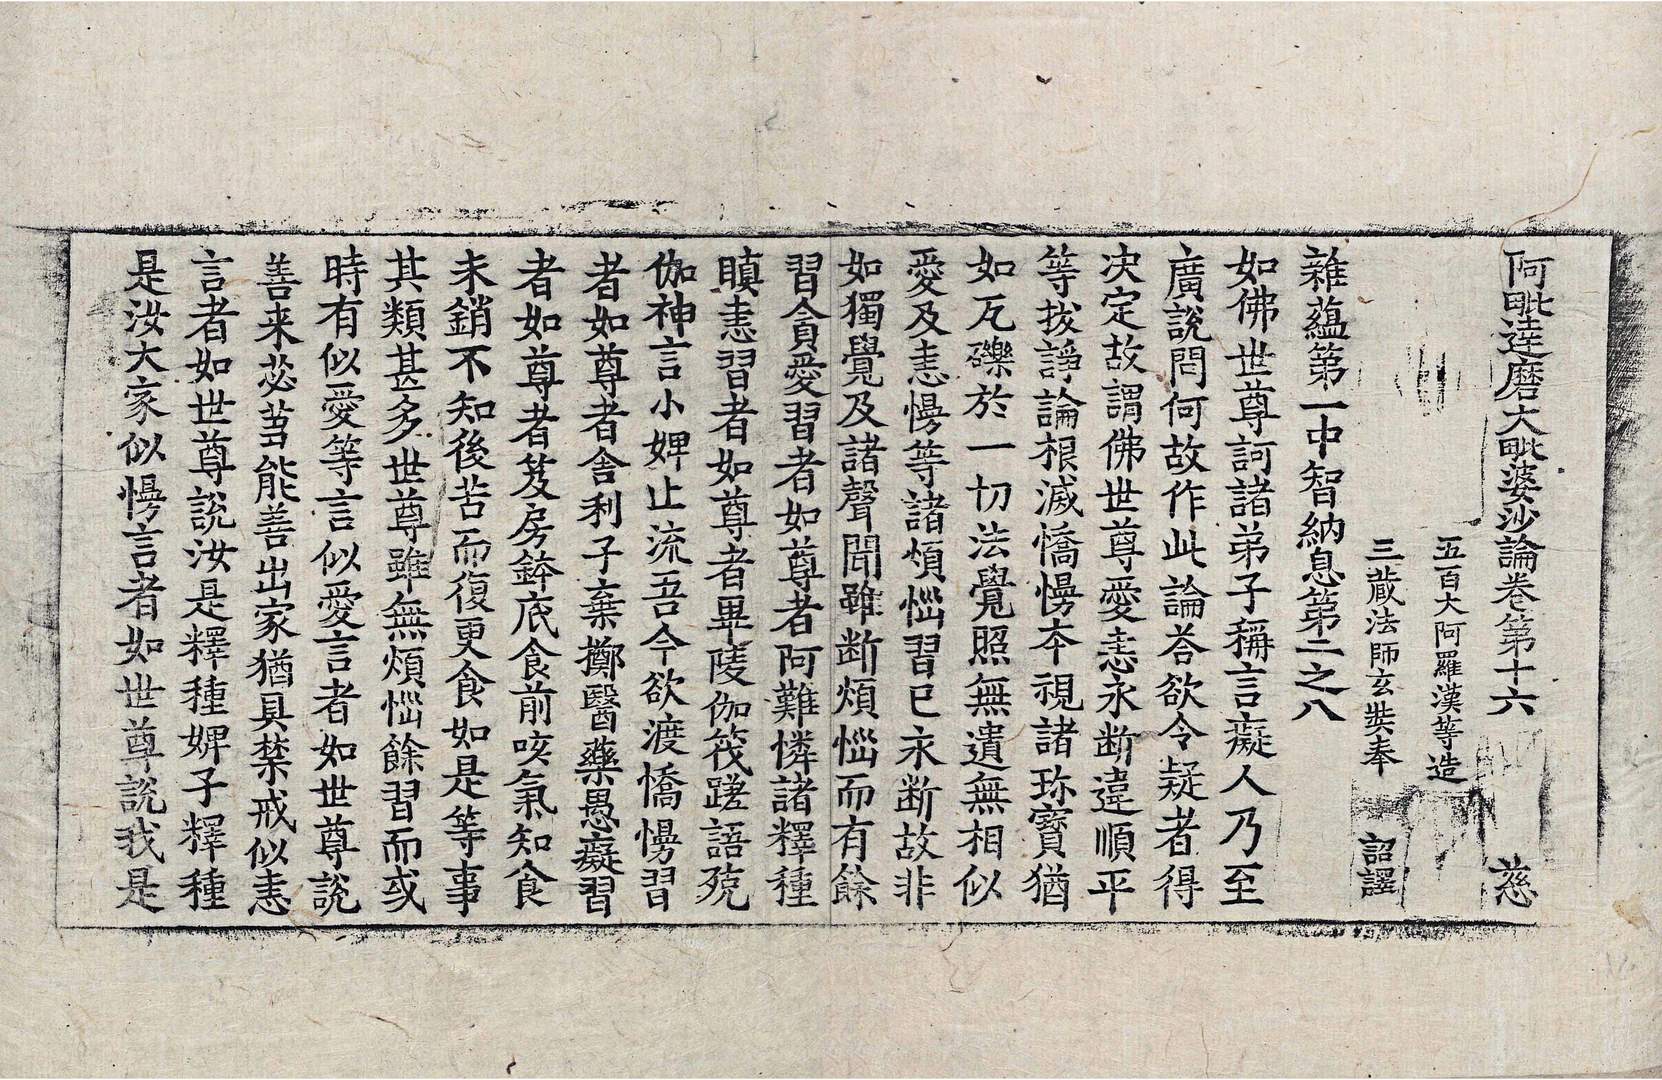 阿毗達磨大毗婆沙論卷第十六 慈
五百大阿羅漢等造
三藏法師玄奘奉 詔譯
雜蘊第一中智納息第二之八
如佛世尊訶諸弟子稱言癡人乃至
廣說問何故作此論荅欲令疑者得
决定故謂佛世尊愛恚永斷違順平
等拔諍論根滅憍慢本視諸珎寶猶
如瓦礫於一切法覺照無遺無相似
愛及恚慢等諸煩惱習已永斷故非
如獨覺及諸聲聞雖断煩惱而有餘
習貪愛習者如尊者阿難憐諸釋種
瞋恚習者如尊者畢陵伽筏蹉語殑
伽神言小婢止流吾今欲渡憍慢習
者如尊者舍利子棄擲醫藥愚癡習
者如尊者笈房鉢底食前咳氣知食
未銷不知後苦而復更食如是等事
其類甚多世尊雖無煩惱餘習而或
時有似愛等言似愛言者如世尊說
善来苾芻能善出家猶具禁戒似恚
言者如世尊說汝是釋種婢子釋種
是汝大家似慢言者如世尊說我是